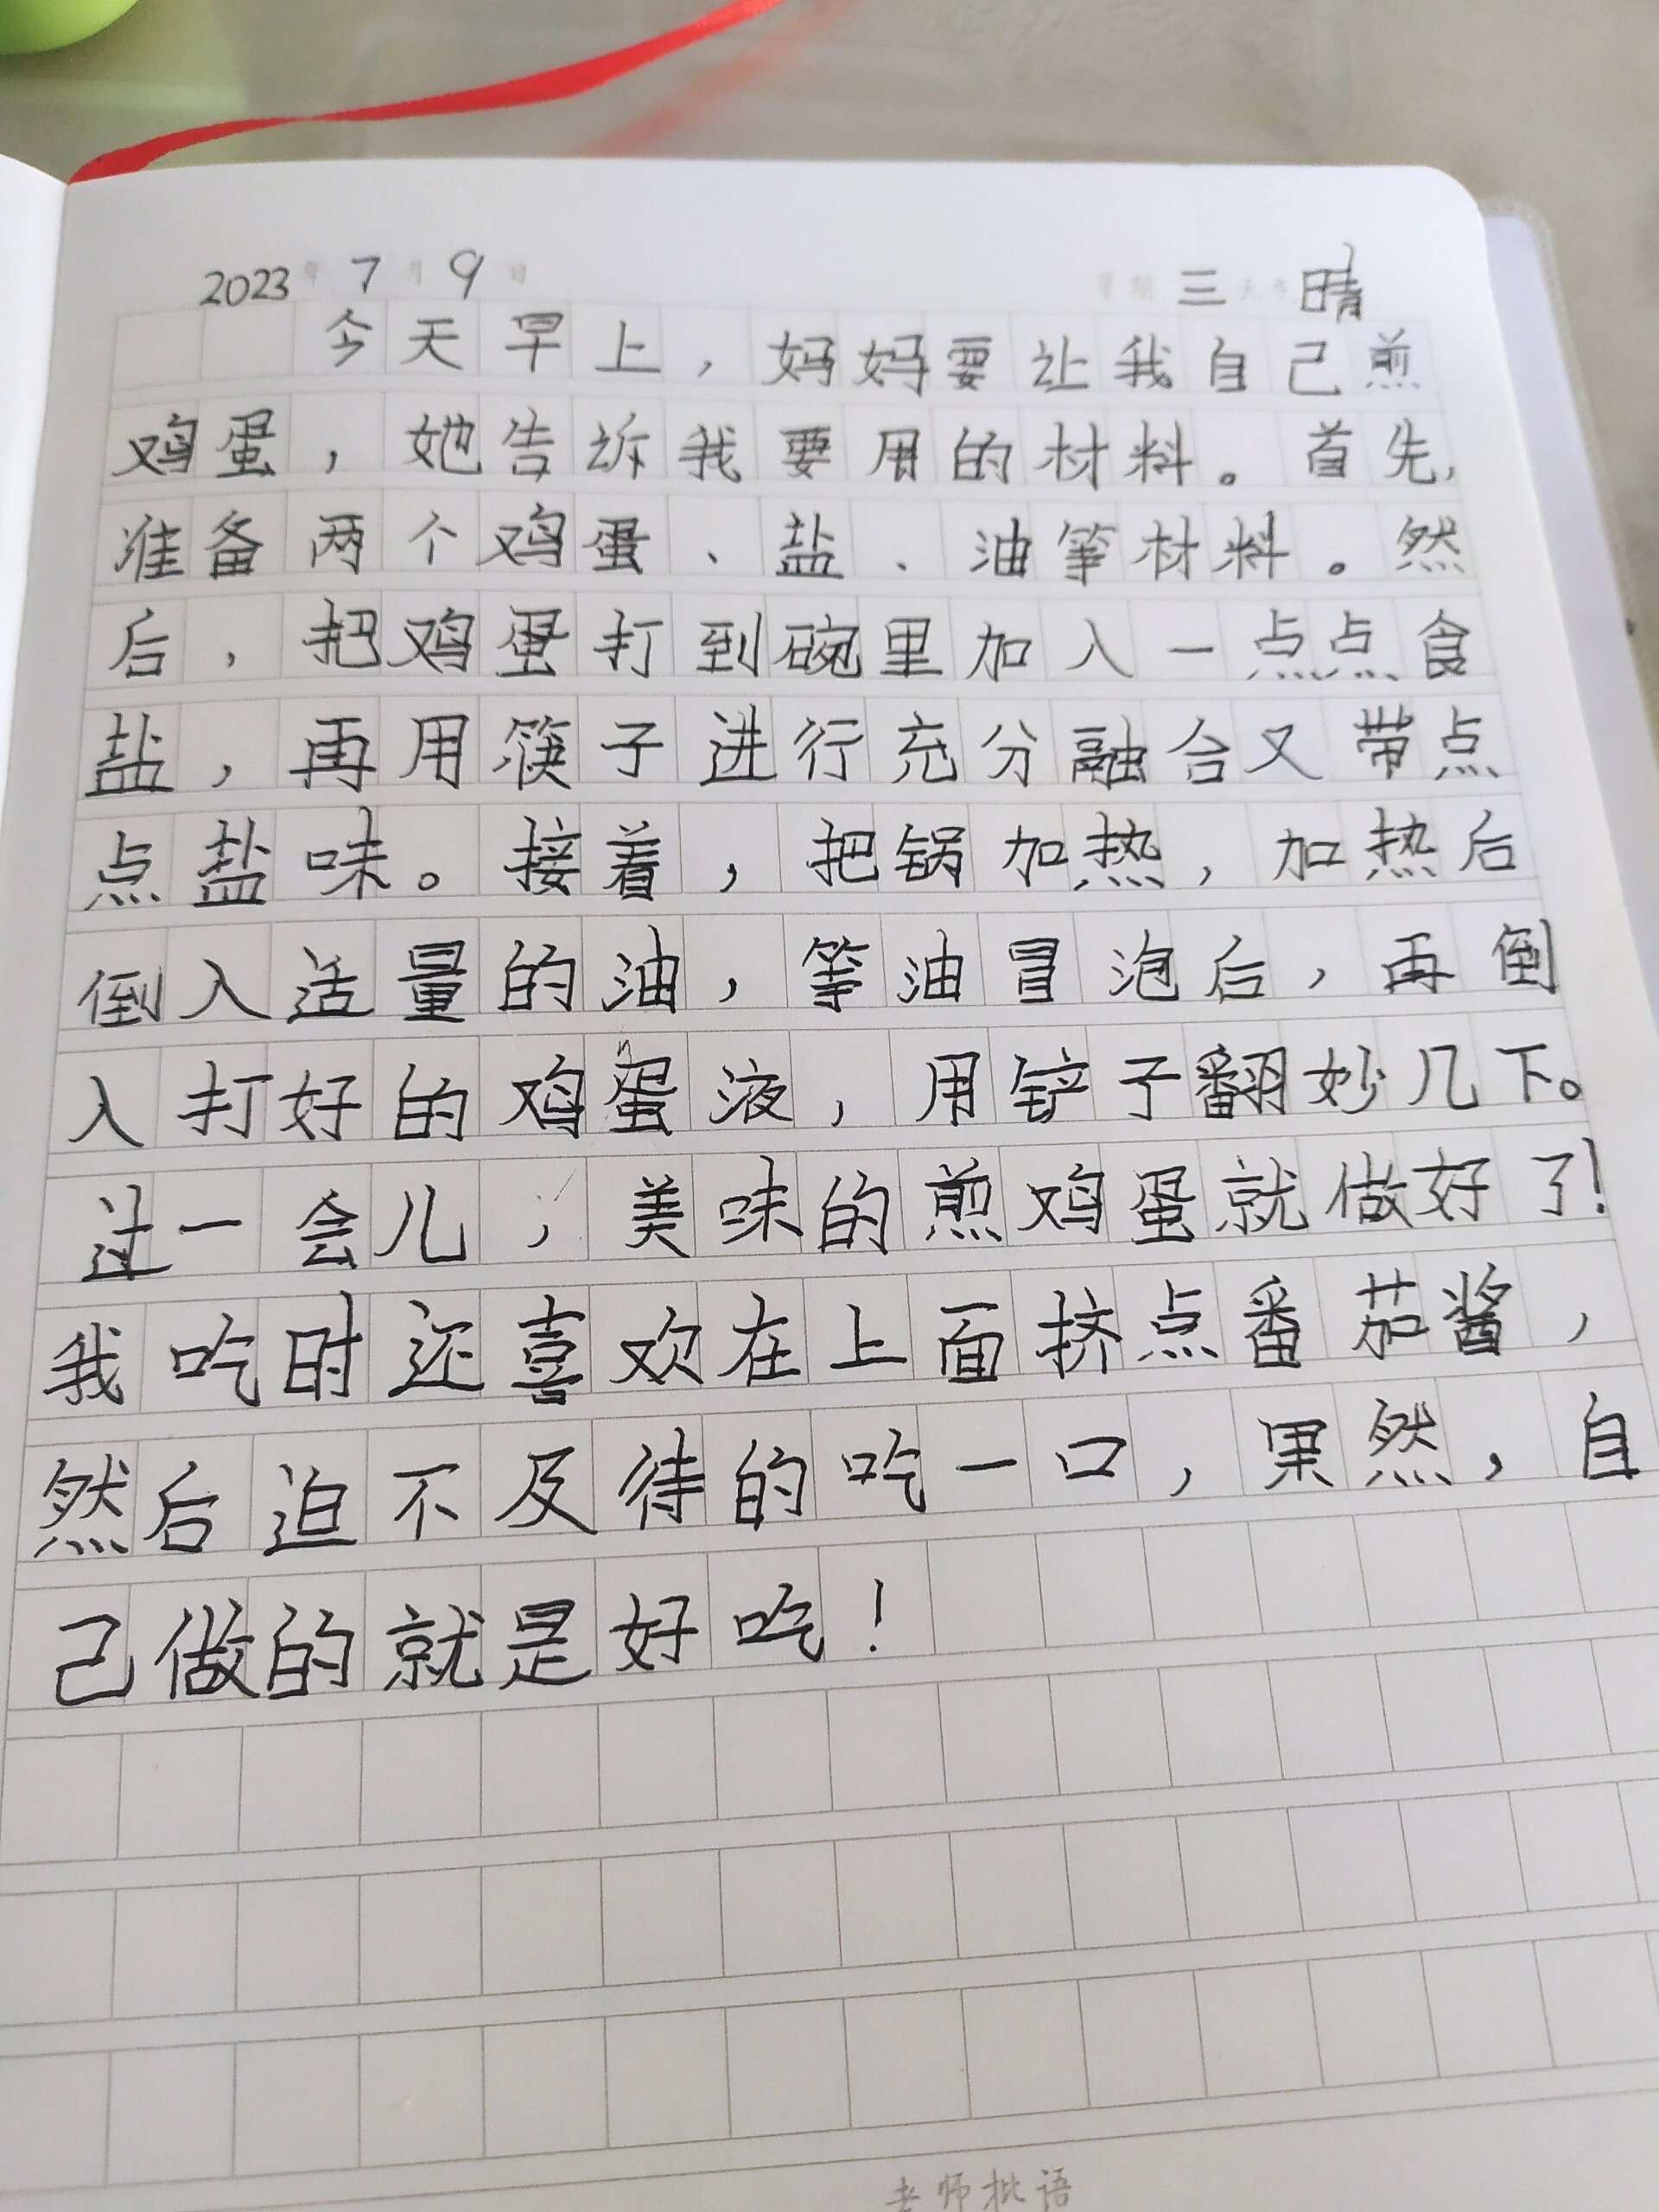 2023年 7月 9日 星期 三 天气 晴
今天早上，妈妈要让我自己煎
鸡蛋，她告诉我要用的材料。首先，
准备两个鸡蛋、盐、油等材料。然
后，把鸡蛋打到碗里加入一点点食
盐，再用筷子进行充分融合又带点
点盐味。接着，把锅加热，加热后
倒入适量的油，等油冒泡后，再倒
入打好的鸡蛋液，用铲子翻妙几下。
过一会儿，美味的煎鸡蛋就做好了！
我吃时还喜欢在上面挤点番茄酱，
然后迫不及待的吃一口，果然，自
己做的就是好吃！
老师批语